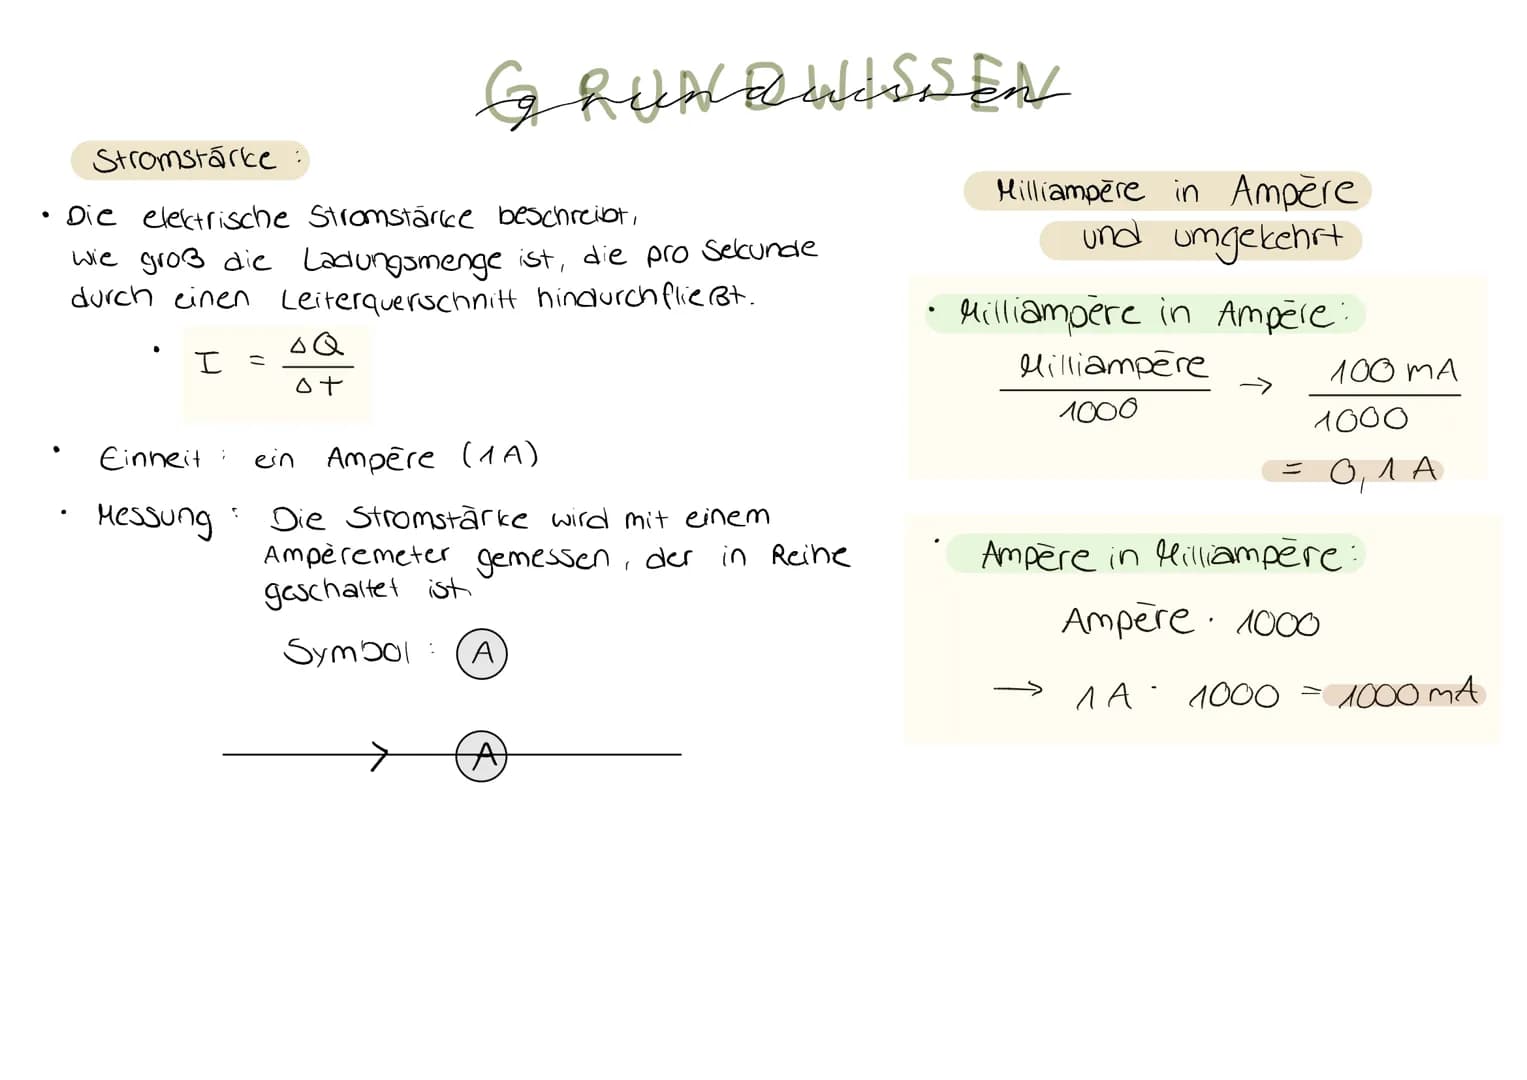 GRUNDWISSEN
grundwissen
Stromstärke :
• Die elektrische Stromstärke beschreibt,
wie groß die Ladungsmenge ist, die pro Sekunde
durch einen Leiterquerschnitt hindurchfließt.
• I = ΔQ / Δt
• Einheit : ein Ampère (1A)
• Messung : Die Stromstärke wird mit einem
Ampèremeter gemessen, der in Reihe
geschaltet ist
Symbol : A
A
Milliampère in Ampère
und umgekehrt
• Milliampère in Ampère:
Milliampère / 1000 → 100 mA / 1000
= 0,1 A
• Ampère in Milliampère:
Ampère · 1000
→ 1A · 1000 = 1000 mA